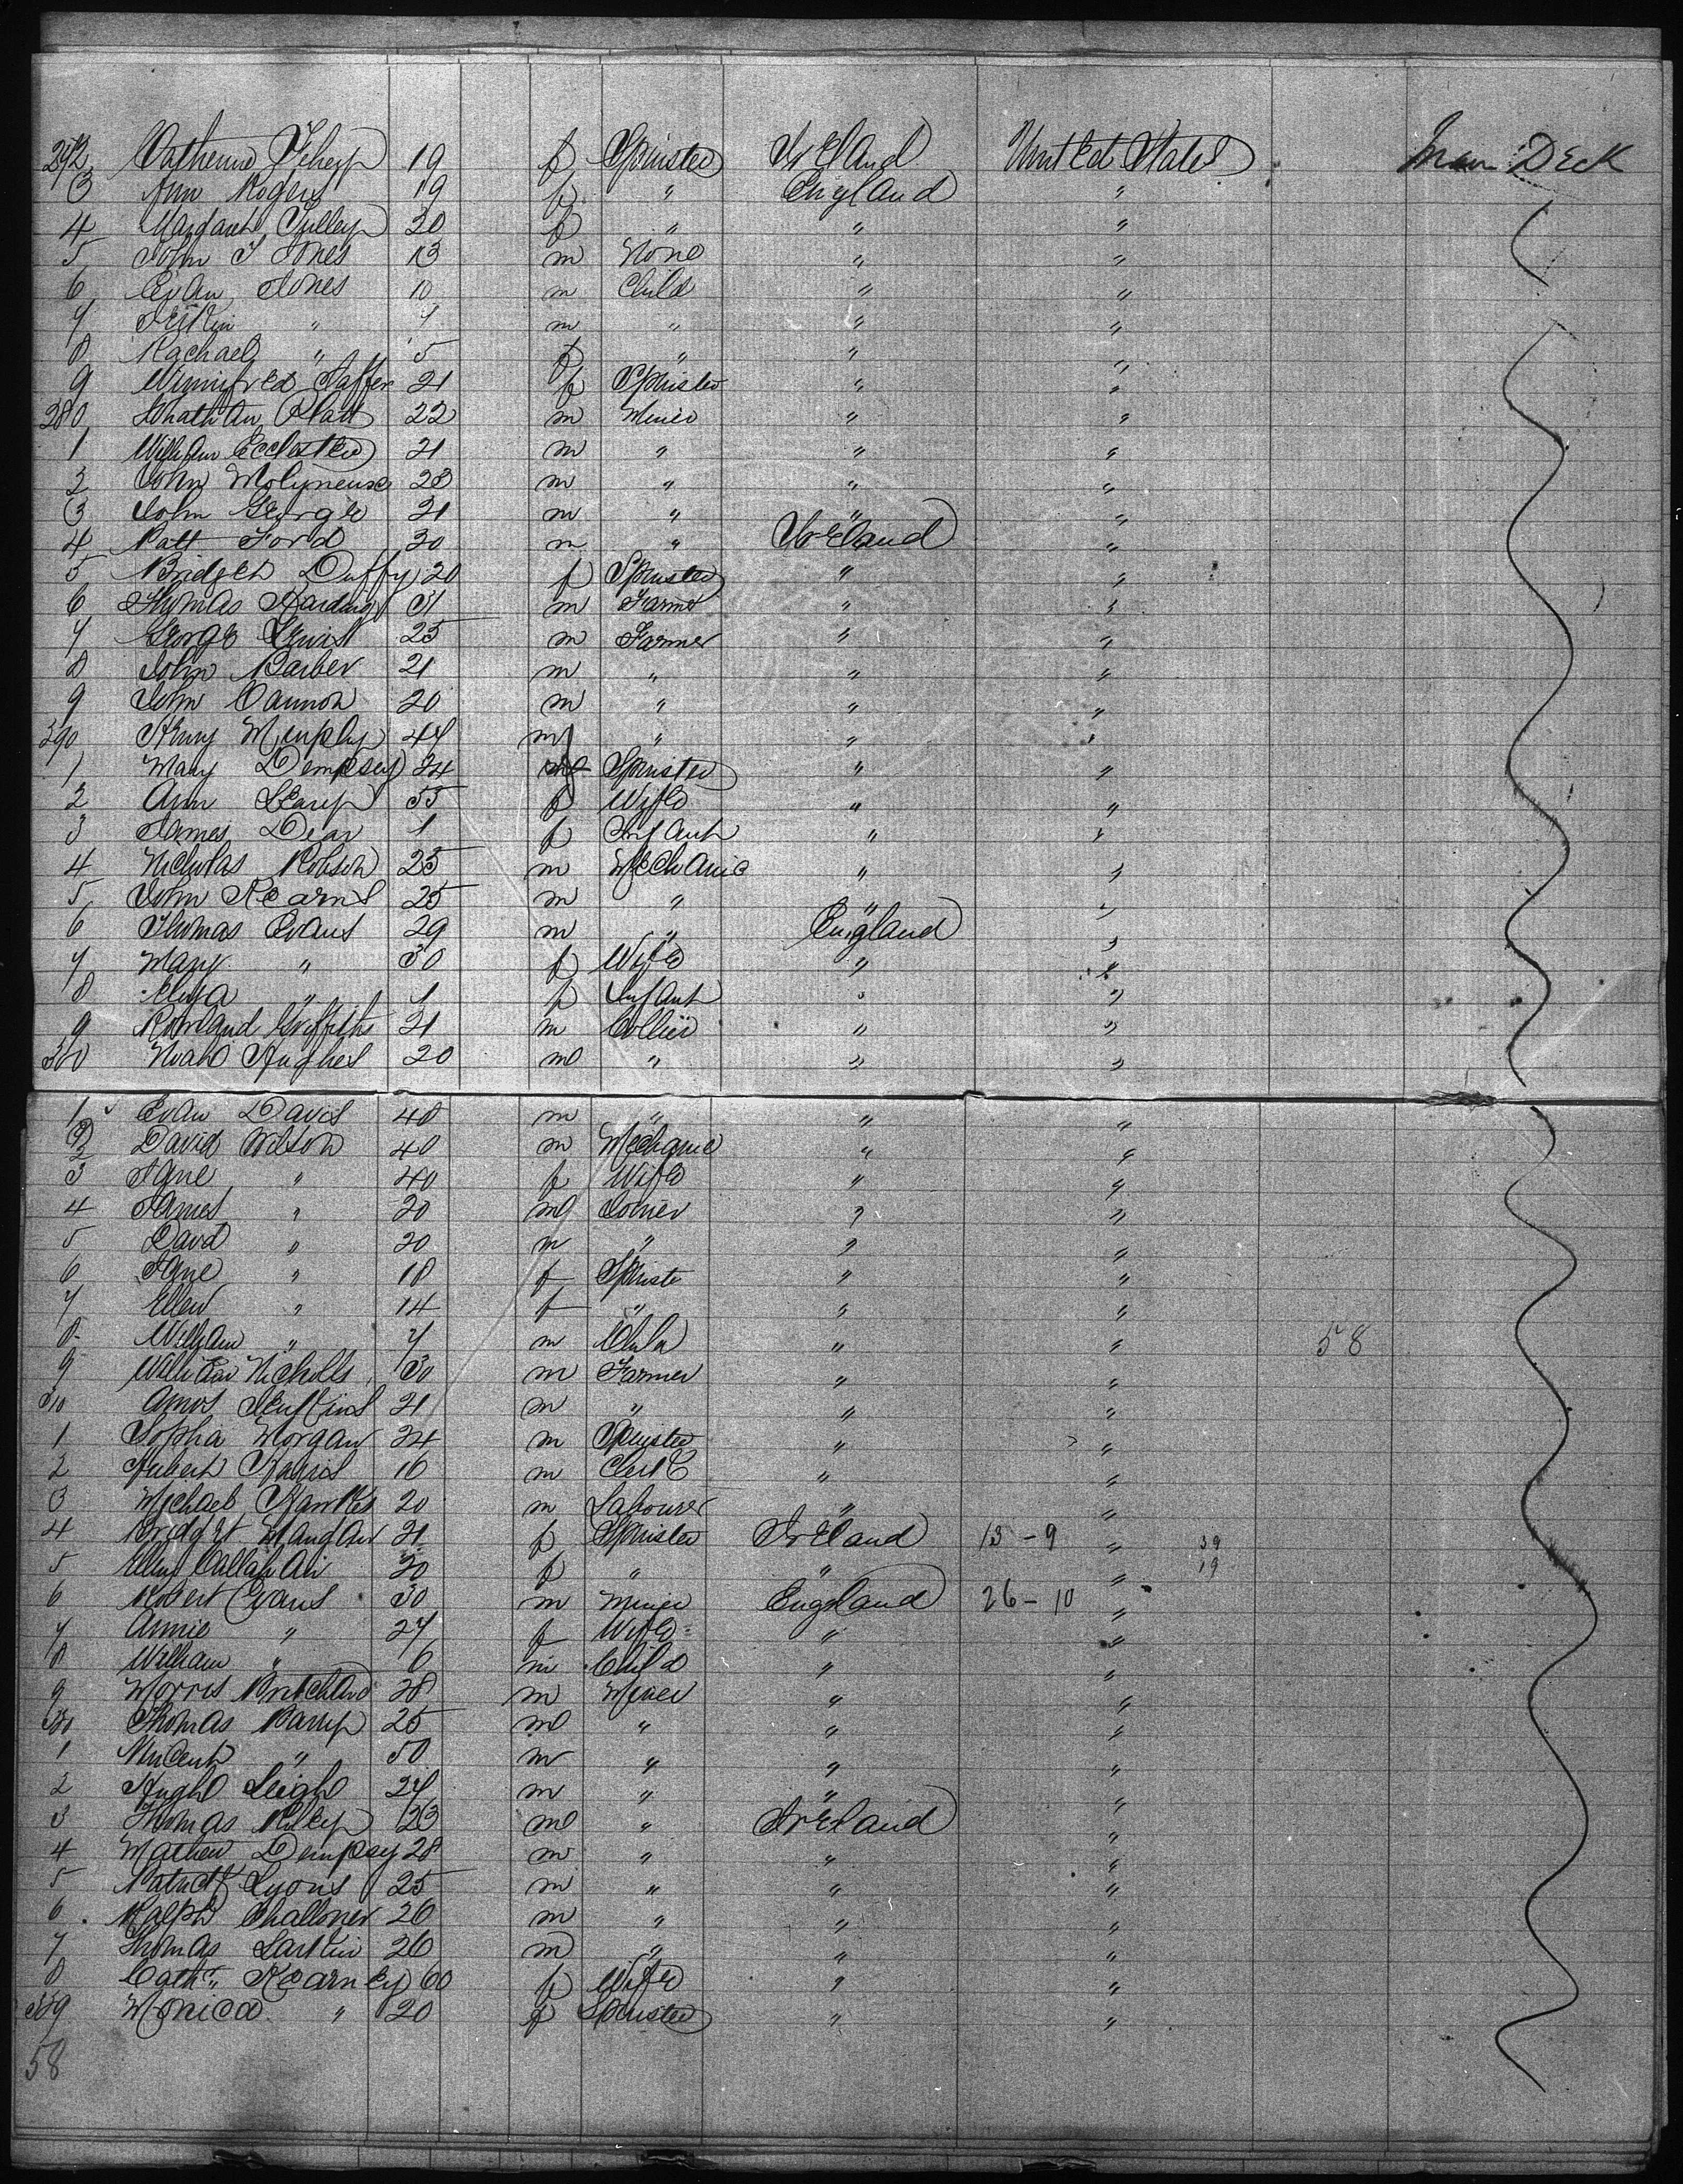 272 Catherine Fehey 19 f Spinster Ireland United States Main Deck
3 Ann Rogers 19 f " England "
4 Margaret Tulley 20 f " " "
5 John T Jones 13 m None " "
6 Evan Jones 10 m Child " "
7 " 7 m " " "
8 Rachael " 5 f " " "
9 Winnifred 21 f Spinster " "
280 Jonathan Platt 22 m Miner " "
1 William 21 m " " "
2 John Molyneux 23 m " " "
3 John George 21 m " " "
4 Patt Ford 30 m " Ireland "
5 Bridget Duffy 20 f Spinster " "
6 Thomas Harding 31 m Farmer " "
7 George 25 m Farmer " "
8 John Barber 21 m " " "
9 John Cannon 20 m " " "
290 Henry Murphy 44 m " " "
1 Mary Dempsey 24 f Spinster " "
2 Ann Leary 55 f Wife " "
3 James Dear 1 f Infant " "
4 Nicholas Robson 25 m Mechanic " "
5 John Kearns 25 m " " "
6 Thomas Evans 29 m " England "
7 Mary " 30 f Wife " "
8 Eliza " 1 f Infant " "
9 Rowland Griffiths 21 m Collier " "
300 Noah Hughes 20 m " " "
1 Evan Davis 40 m " " "
2 David Wilson 40 m Mechanic " "
3 Jane " 40 f Wife " "
4 James " 20 m Joiner " "
5 David " 20 m " " "
6 Jane " 18 f Spinster " "
7 Ellen " 14 f " " "
8 William " 7 m Child " " 58
9 William Nicholls 30 m Farmer " "
310 Amos Jenkins 21 m " " "
1 Sophia Morgan 24 m Spinster " "
2 Hubert 16 m Clerk " "
3 Michael Hawkes 20 m Labourer " "
4 Bridget Mangan 21 f Spinster Ireland 13-9 " 39
5 Ellen Callahan 20 f " " " 19
6 Robert Evans 30 m Miner England 26-10 "
7 Annie " 27 f Wife " "
8 William " 6 m Child " "
9 Morris Pritchard 28 m Miner " "
320 Thomas Barry 25 m " " "
1 Vincent " 50 m " " "
2 Hugh Leigh 24 m " " "
3 Thomas Riley 23 m " Ireland "
4 Mathew Dempsey 28 m " " "
5 Patrick Lyons 25 m " " "
6 Ralph Challoner 26 m " " "
7 Thomas Larkin 26 m " " "
8 Cathe Kearney 60 f Wife " "
329 Monica " 20 f Spinster " "
58